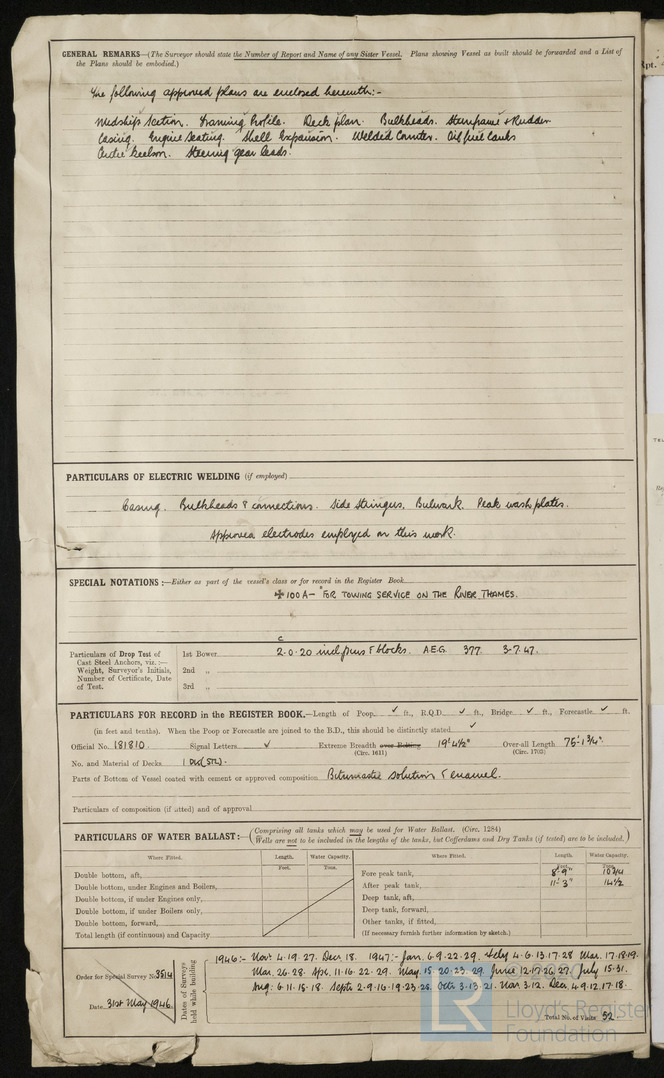 GENERAL REMARKS—(The Surveyor should state the Number of Report and Name of any Sister Vessel. Plans showing Vessel as built should be forwarded and a List of
the Plans should be embodied.)
The following approved plans are enclosed herewith:-
Midship Section. Framing Profile. Deck plan. Bulkheads. Sternframe & Rudder
Casing. Engine Seating. Shell Expansion. Welded Counter. Oil fuel tanks
Centre Keelson. Steering gear leads.
PARTICULARS OF ELECTRIC WELDING (if employed)
Casing. Bulkheads & connections. Side Stringers. Bulwark. Peak wash plates.
Approved electrodes employed on this work.
SPECIAL NOTATIONS:—Either as part of the vessel's class or for record in the Register Book
✠ 100A— "FOR TOWING SERVICE ON THE RIVER THAMES.
Particulars of Drop Test of
Cast Steel Anchors, viz.:—
Weight, Surveyor's Initials,
Number of Certificate, Date
of Test.
c
1st Bower 2-0-20 incl. pins & blocks. A.E.G. 377 3-7-47.
2nd „
3rd „
PARTICULARS FOR RECORD in the REGISTER BOOK.—Length of Poop ✓ ft., R.Q.D. ✓ ft., Bridge ✓ ft., Forecastle ✓ ft.
(in feet and tenths). When the Poop or Forecastle are joined to the B.D., this should be distinctly stated ✓
Official No. 181810. Signal Letters ✓ Extreme Breadth over Belting 19'-4½" Over-all Length 75'-1¾"
(Circ. 1611) (Circ. 1703)
No. and Material of Decks 1 Dk (STL).
Parts of Bottom of Vessel coated with cement or approved composition Bitumastic solution & enamel.
Particulars of composition (if fitted) and of approval
PARTICULARS OF WATER BALLAST:—(Comprising all tanks which may be used for Water Ballast. (Circ. 1284)
Wells are not to be included in the lengths of the tanks, but Cofferdams and Dry Tanks (if tested) are to be included.)
Where Fitted. Length. Water Capacity. Where Fitted. Length. Water Capacity.
Feet. Tons. Feet. Tons.
Double bottom, aft, Fore peak tank, 8'-9" 10¾
Double bottom, under Engines and Boilers, After peak tank, 11'-3" 14½
Double bottom, if under Engines only, Deep tank, aft,
Double bottom, if under Boilers only, Deep tank, forward,
Double bottom, forward, Other tanks, if fitted,
Total length (if continuous) and Capacity (If necessary furnish further information by sketch.)
Order for Special Survey No. 3514
Date 31st May 1946
Dates of Surveys
held while building
1946:- Nov. 4-19-27. Dec. 18. 1947:- Jan. 6-9-22-29. Feby 4-6-13-17-28 Mar. 17-18-19.
Mar. 26-28. Apr. 11-16-22-29. May. 15-20-23-29. June 12-17-26-27. July 15-31.
Aug. 6-11-15-18. Septr 2-9-16-19-23-26. Octr 3-13-21. Nov. 3-12. Dec. 4-9-12-17-18.
Total No. of Visits 52
LR
Lloyd's Register
Foundation